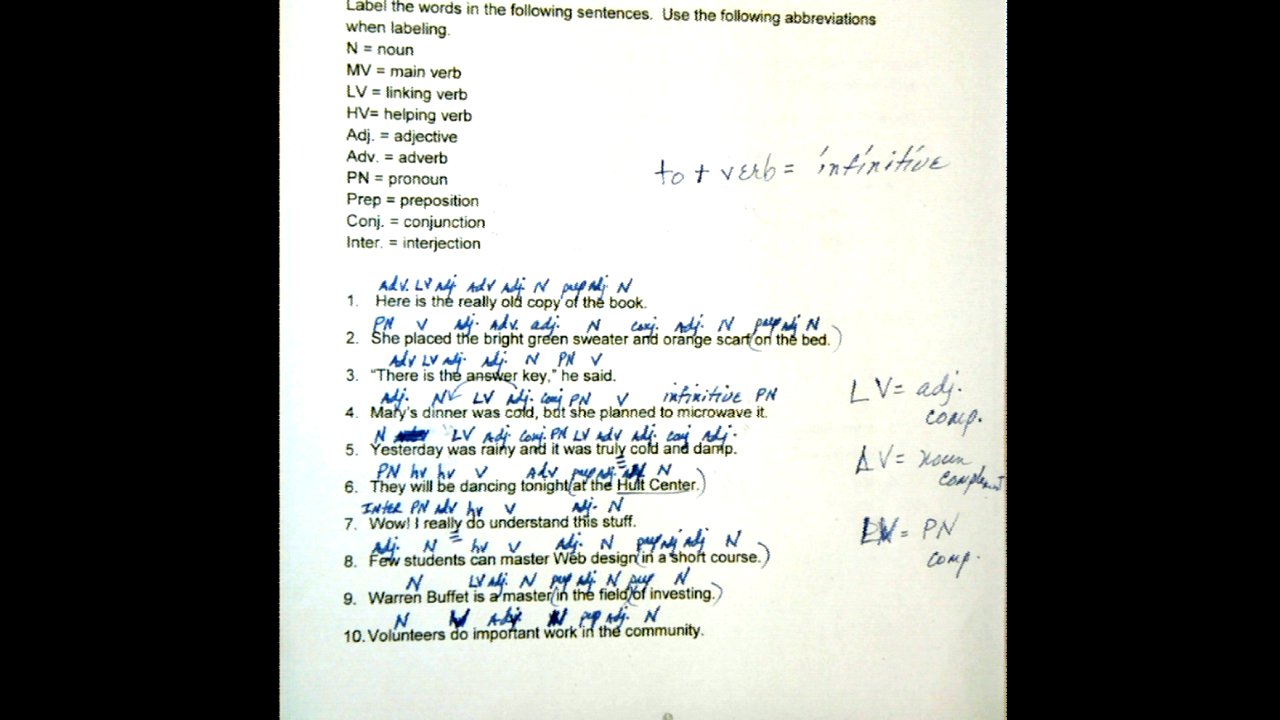 Label the words in the following sentences. Use the following abbreviations
when labeling.
N = noun
MV = main verb
LV = linking verb
HV= helping verb
Adj. = adjective
Adv. = adverb
PN = pronoun
Prep = preposition
Conj. = conjunction
Inter. = interjection
to + verb = infinitive
Adv. LV Adj Adv Adj. N prep Adj. N
1. Here is the really old copy of the book.
PN V Adj. Adv. adj. N conj. Adj. N prep Adj N
2. She placed the bright green sweater and orange scarf (on the bed.)
Adv LV Adj. Adj. N PN V
3. “There is the answer key,” he said.
Adj. N LV Adj. conj PN V infinitive PN
4. Mary's dinner was cold, but she planned to microwave it.
N LV Adj conj. PN LV adv Adj. conj Adj.
5. Yesterday was rainy and it was truly cold and damp.
PN hv hv V Adv prep Adj. N
6. They will be dancing tonight (at the Hult Center.)
Inter PN adv hv V Adj. N
7. Wow! I really do understand this stuff.
Adj. N hv V Adj. N prep Adj Adj N
8. Few students can master Web design (in a short course.)
N LV Adj. N prep Adj. N prep N
9. Warren Buffet is a master (in the field) (of investing.)
N V Adj N prep Adj. N
10. Volunteers do important work in the community.
LV = adj.
comp.
LV = noun
complement
LV = PN
comp.